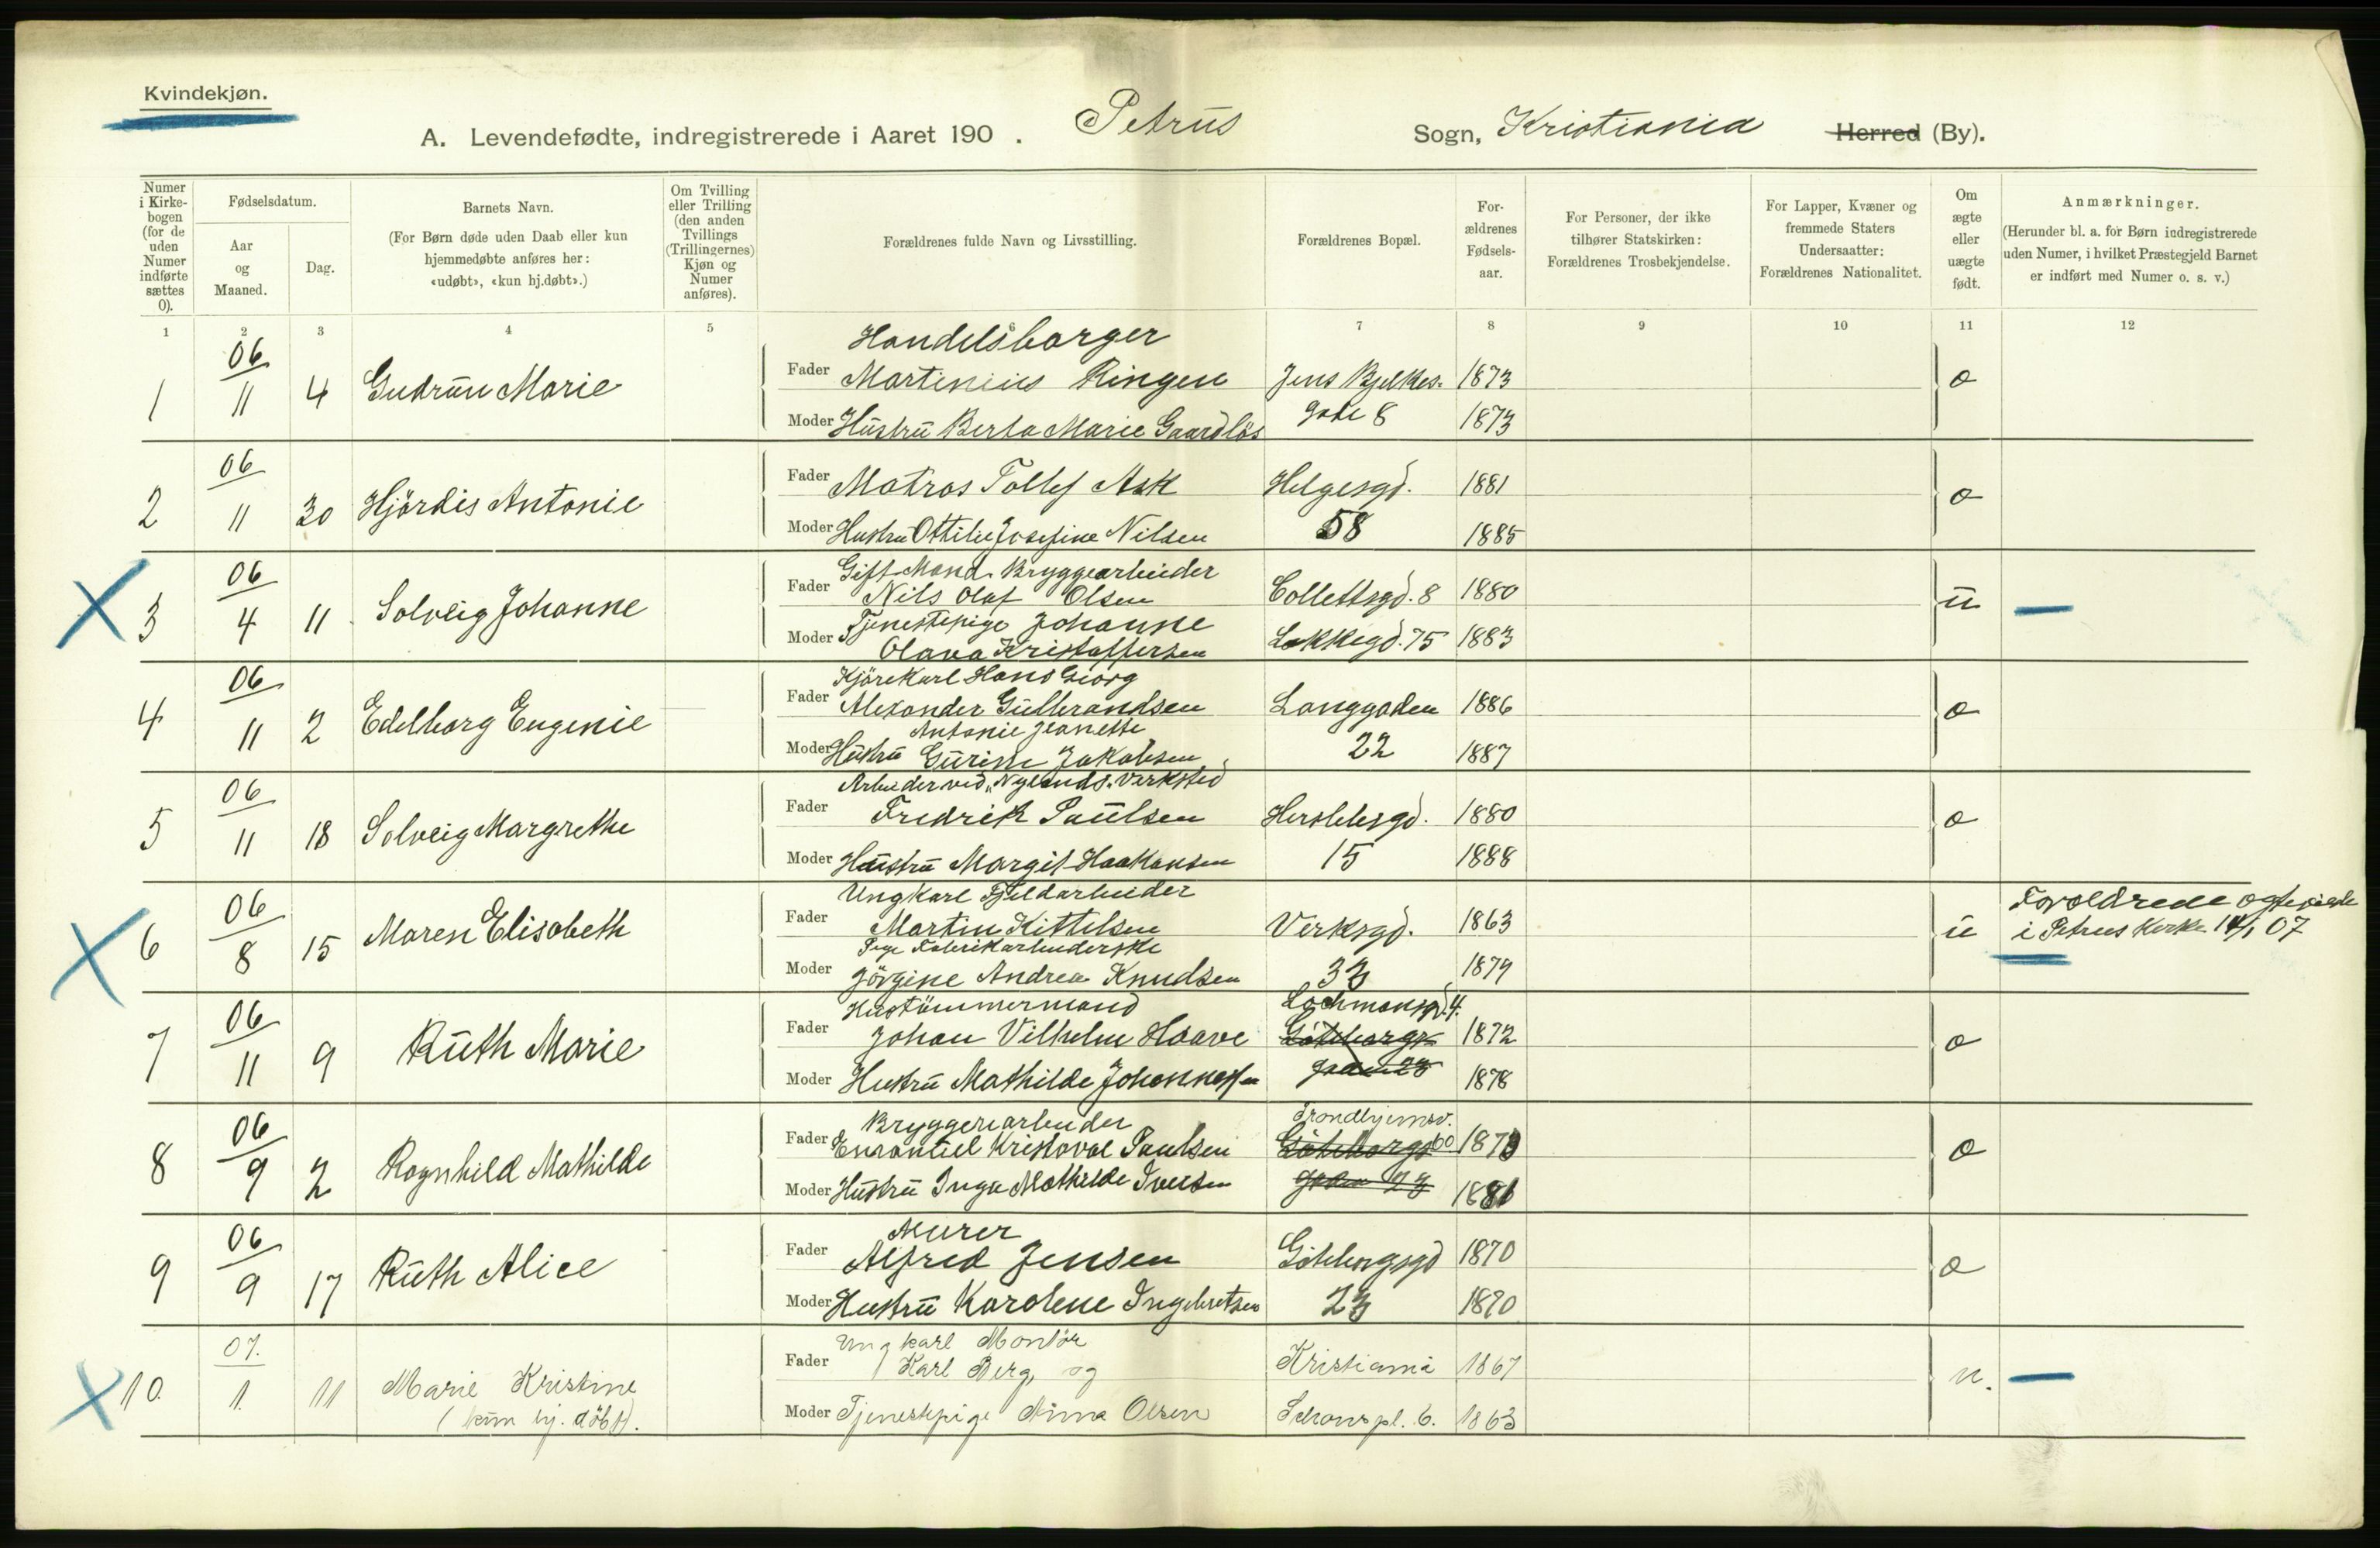 Kvindekjøn.
A. Levendefødte, indregistrerede i Aaret 190 . Petrus Sogn, Kristiania Herred (By).
Numer i Kirke-bogen (for de uden Numer indførte sættes 0).
Fødselsdatum.
Aar og Maaned.
Dag.
Barnets Navn.
(For Børn døde uden Daab eller kun hjemmedøbte anføres her: «udøbt», «kun hj.døbt».)
Om Tvilling eller Trilling (den anden Tvillings (Trillingernes) Kjøn og Numer anføres).
Forældrenes fulde Navn og Livsstilling.
Forældrenes Bopæl.
For-ældrenes Fødsels-aar.
For Personer, der ikke tilhører Statskirken: Forældrenes Trosbekjendelse.
For Lapper, Kvæner og fremmede Staters Undersaatter: Forældrenes Nationalitet.
Om ægte eller uægte født.
Anmærkninger.
(Herunder bl. a. for Børn indregistrerede uden Numer, i hvilket Præstegjeld Barnet er indført med Numer o. s. v.)
1 2 3 4 5 6 7 8 9 10 11 12
Handelsborger
1 06/11 4 Gudrun Marie Fader Martinius Ringen Jens Bjelkes- 1873 æ
Moder Hustru Berta Marie Gaardløs gade 8 1873
2 06/11 30 Hjördis Antonie Fader Matros Tollef Ask Helgesgd. 1881 æ
Moder Hustru Ottilie Josefine Nilsen 58 1885
Gift Mand Bryggearbeider
3 06/4 11 Solveig Johanne Fader Nils Olaf Olsen Collettsgd. 8 1880 u —
Moder Tjenestepige Johanne
Olava Kristoffersen Løkkegd. 75 1883
Kjörekarl Hans Georg
4 06/11 2 Edelborg Eugenie Fader Alexander Gulbrandsen Langgaden 1886 æ
Antonie Jeanette
Moder Hustru Gurine Jakobsen 22 1887
Arbeider ved "Nylands" Verksted
5 06/11 18 Solveig Margrethe Fader Fredrik Paulsen Herslebsgd. 1880 æ
Moder Hustru Margit Haakonsen 15 1888
Ungkarl Fjeldarbeider
6 06/8 15 Maren Elisabeth Fader Martin Kittelsen Verksgd. 1863 u Forældrene ægteviede
i Petrus Kirke 14/1 07
Pige Fabrikarbeiderske
Moder Jörgine Andrea Knudsen 33 1879
Hustömmermand Lochmansgd. 4.
7 06/11 9 Ruth Marie Fader Johan Vilhelm Haave Göteborgs- 1872 æ
Moder Hustru Mathilde Johannessen gaden 23 1878
Bryggeriarbeider Trondhjemsv.
8 06/9 2 Ragnhild Mathilde Fader Emanuel Kristoval Paulsen Göteborgs 60 187 æ
Moder Hustru Inga Mathilde Iversen gaden 23 1881
Murer
9 06/9 17 Ruth Alice Fader Alfred Jensen Göteborgsgd 1870 æ
Moder Hustru Karolene Ingebretsen 23 1870
Ungkarl Montör
10. 07./1. 11 Marie Kristine Fader Karl Berg, og Kristiania 1867 u. —
(kun hj. döbt). Moder Tjenestepige Anna Olsen Schouspl. 6. 1863